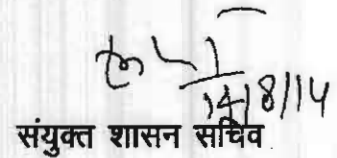 14/8/14
संयुक्त शासन सचिव